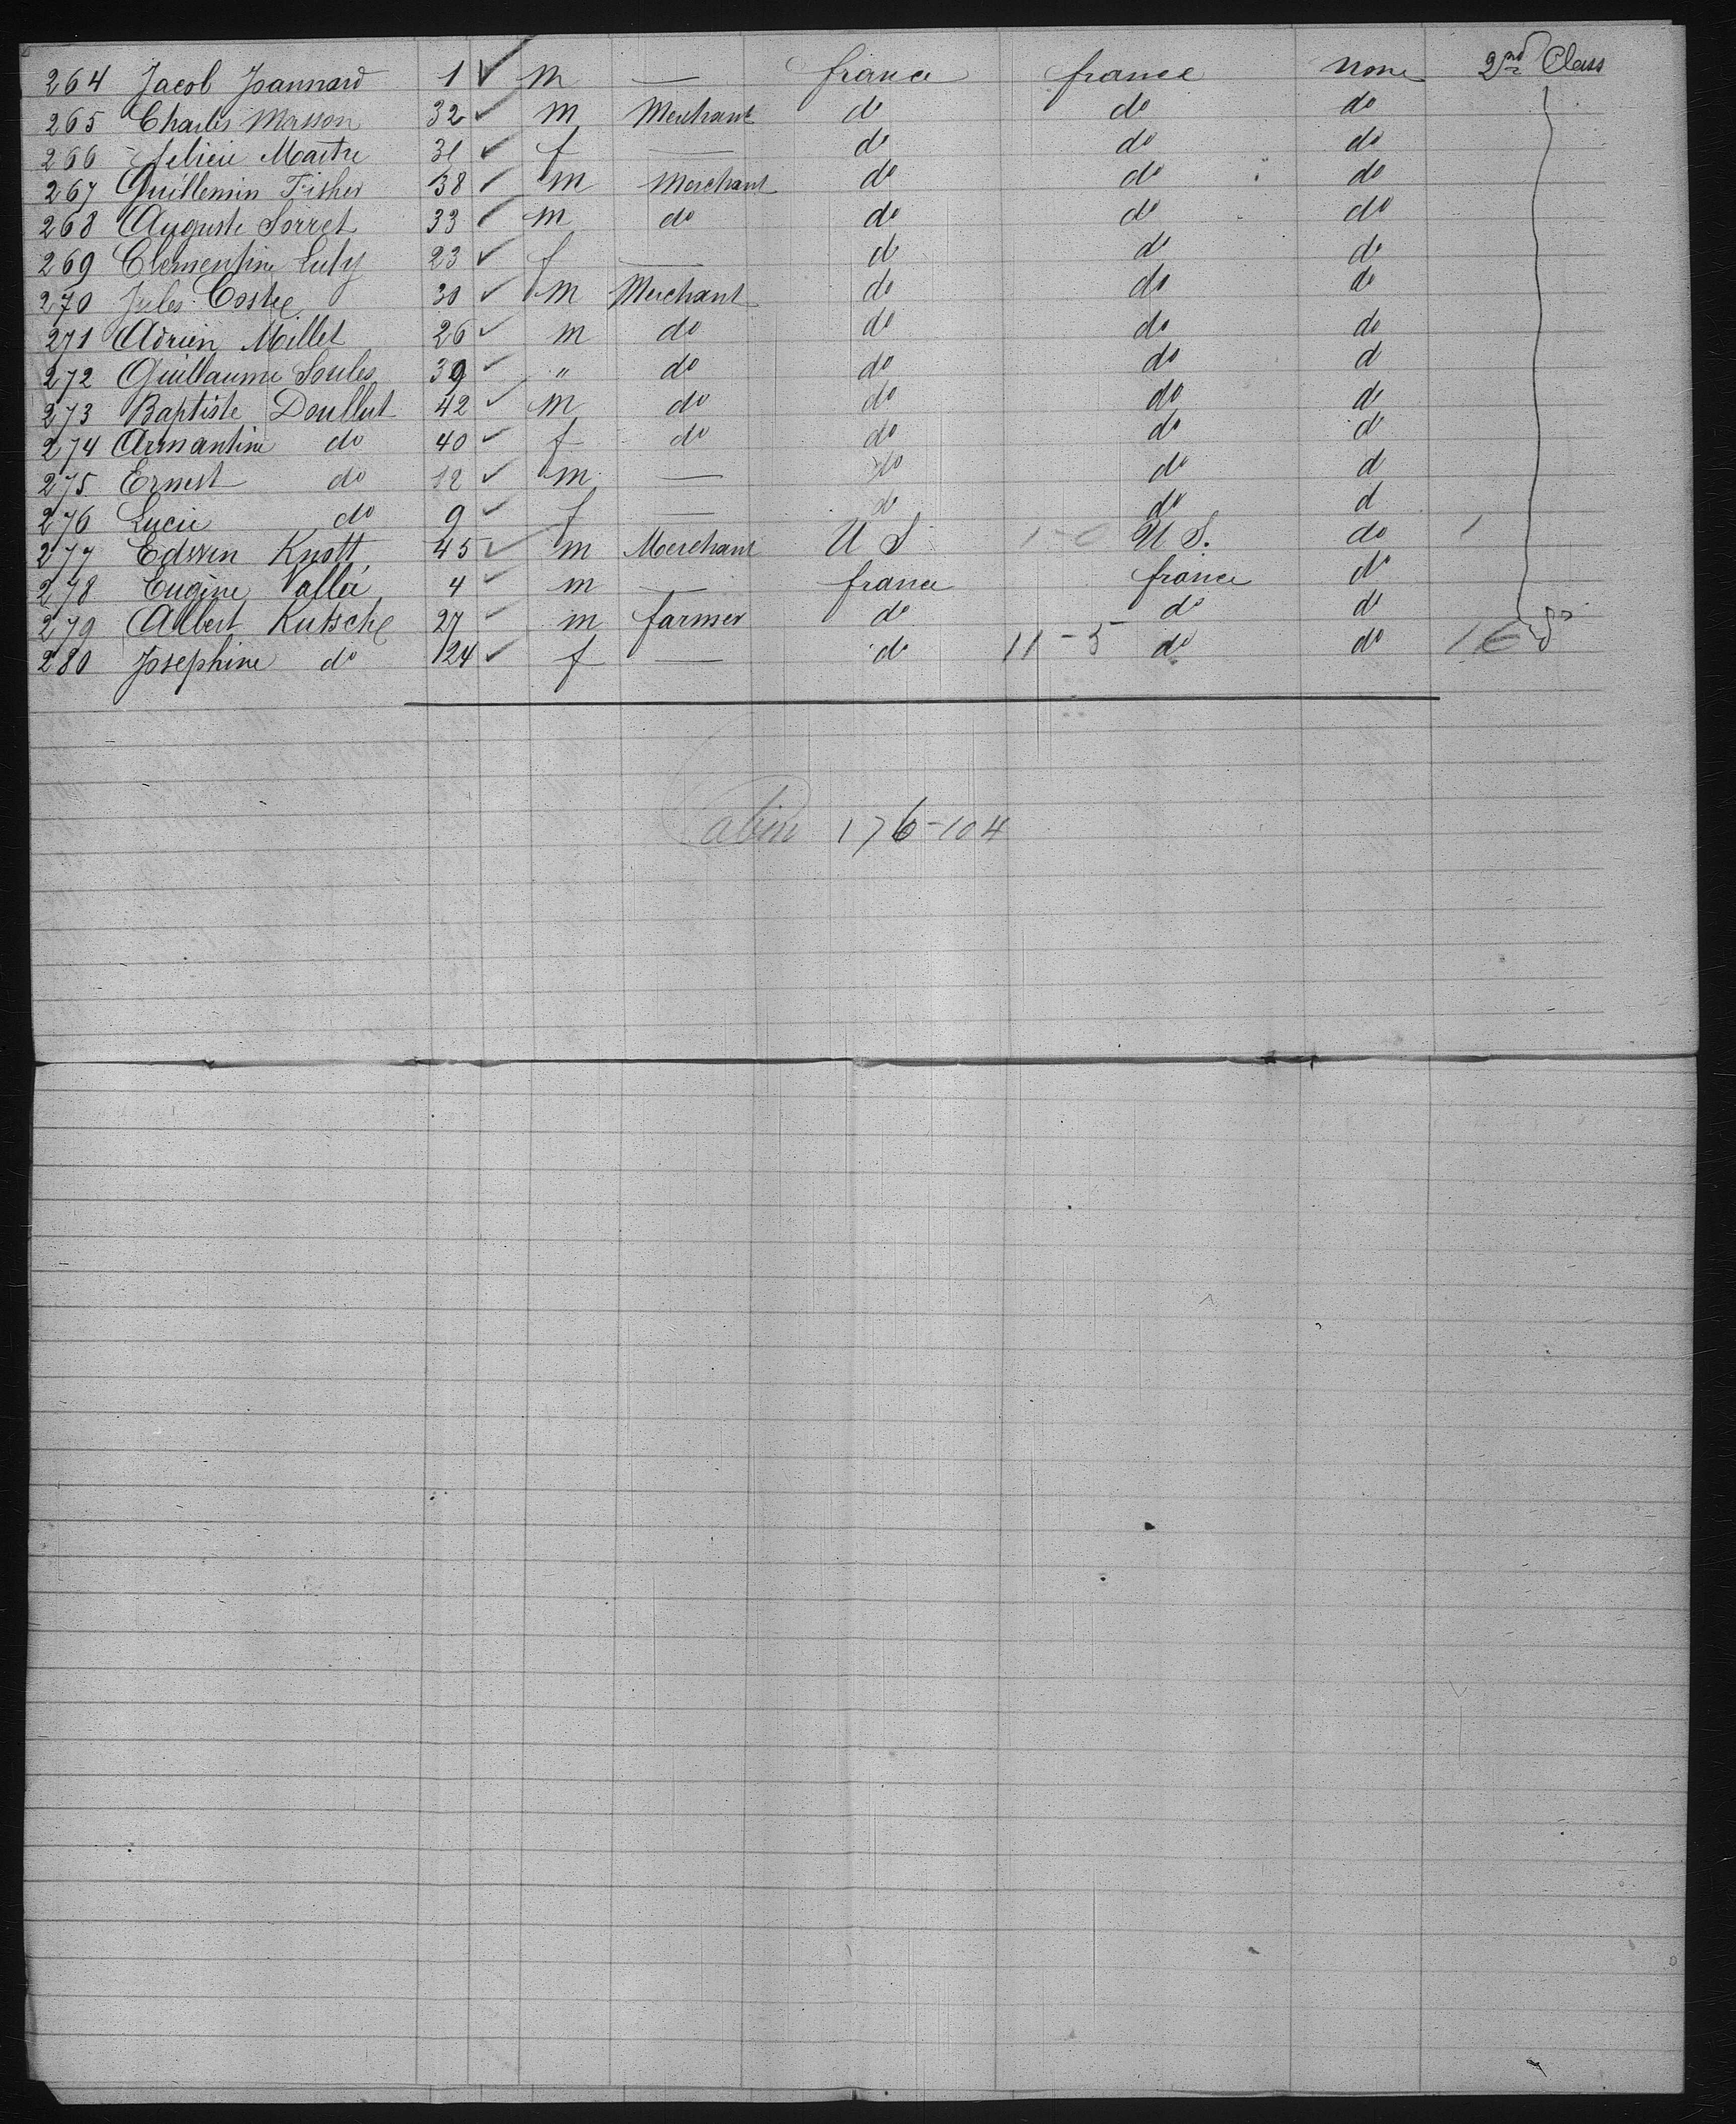 264 Jacob Joannard 1 ✓ m — france france none 2nd Class
265 Charles Masson 32 ✓ m Merchant do do do
266 Felicie Maitre 31 ✓ f — do do do
267 Guillemin Fisher 38 ✓ m Merchant do do do
268 Auguste Sorret 33 ✓ m do do do do
269 Clementine Luty 23 ✓ f — do do do
270 Jules Coste 30 ✓ m Merchant do do do
271 Adrien Millet 26 ✓ m do do do do
272 Guillaume Soules 39 ✓ " do do do d
273 Baptiste Doullut 42 ✓ m do do do do
274 Armantine do 40 ✓ f do do do d
275 Ernest do 12 ✓ m — do do d
276 Lucie do 9 ✓ f — do do d
277 Edwin Knott 45 ✓ m Merchant U S 1-0 U S. do 1
278 Eugène Valla 4 ✓ m — france france do
279 Albert Kutsche 27 ✓ m farmer do do do
280 Josephine do 24 ✓ f — do 11-5 do do 16 do
Cabin 176-104